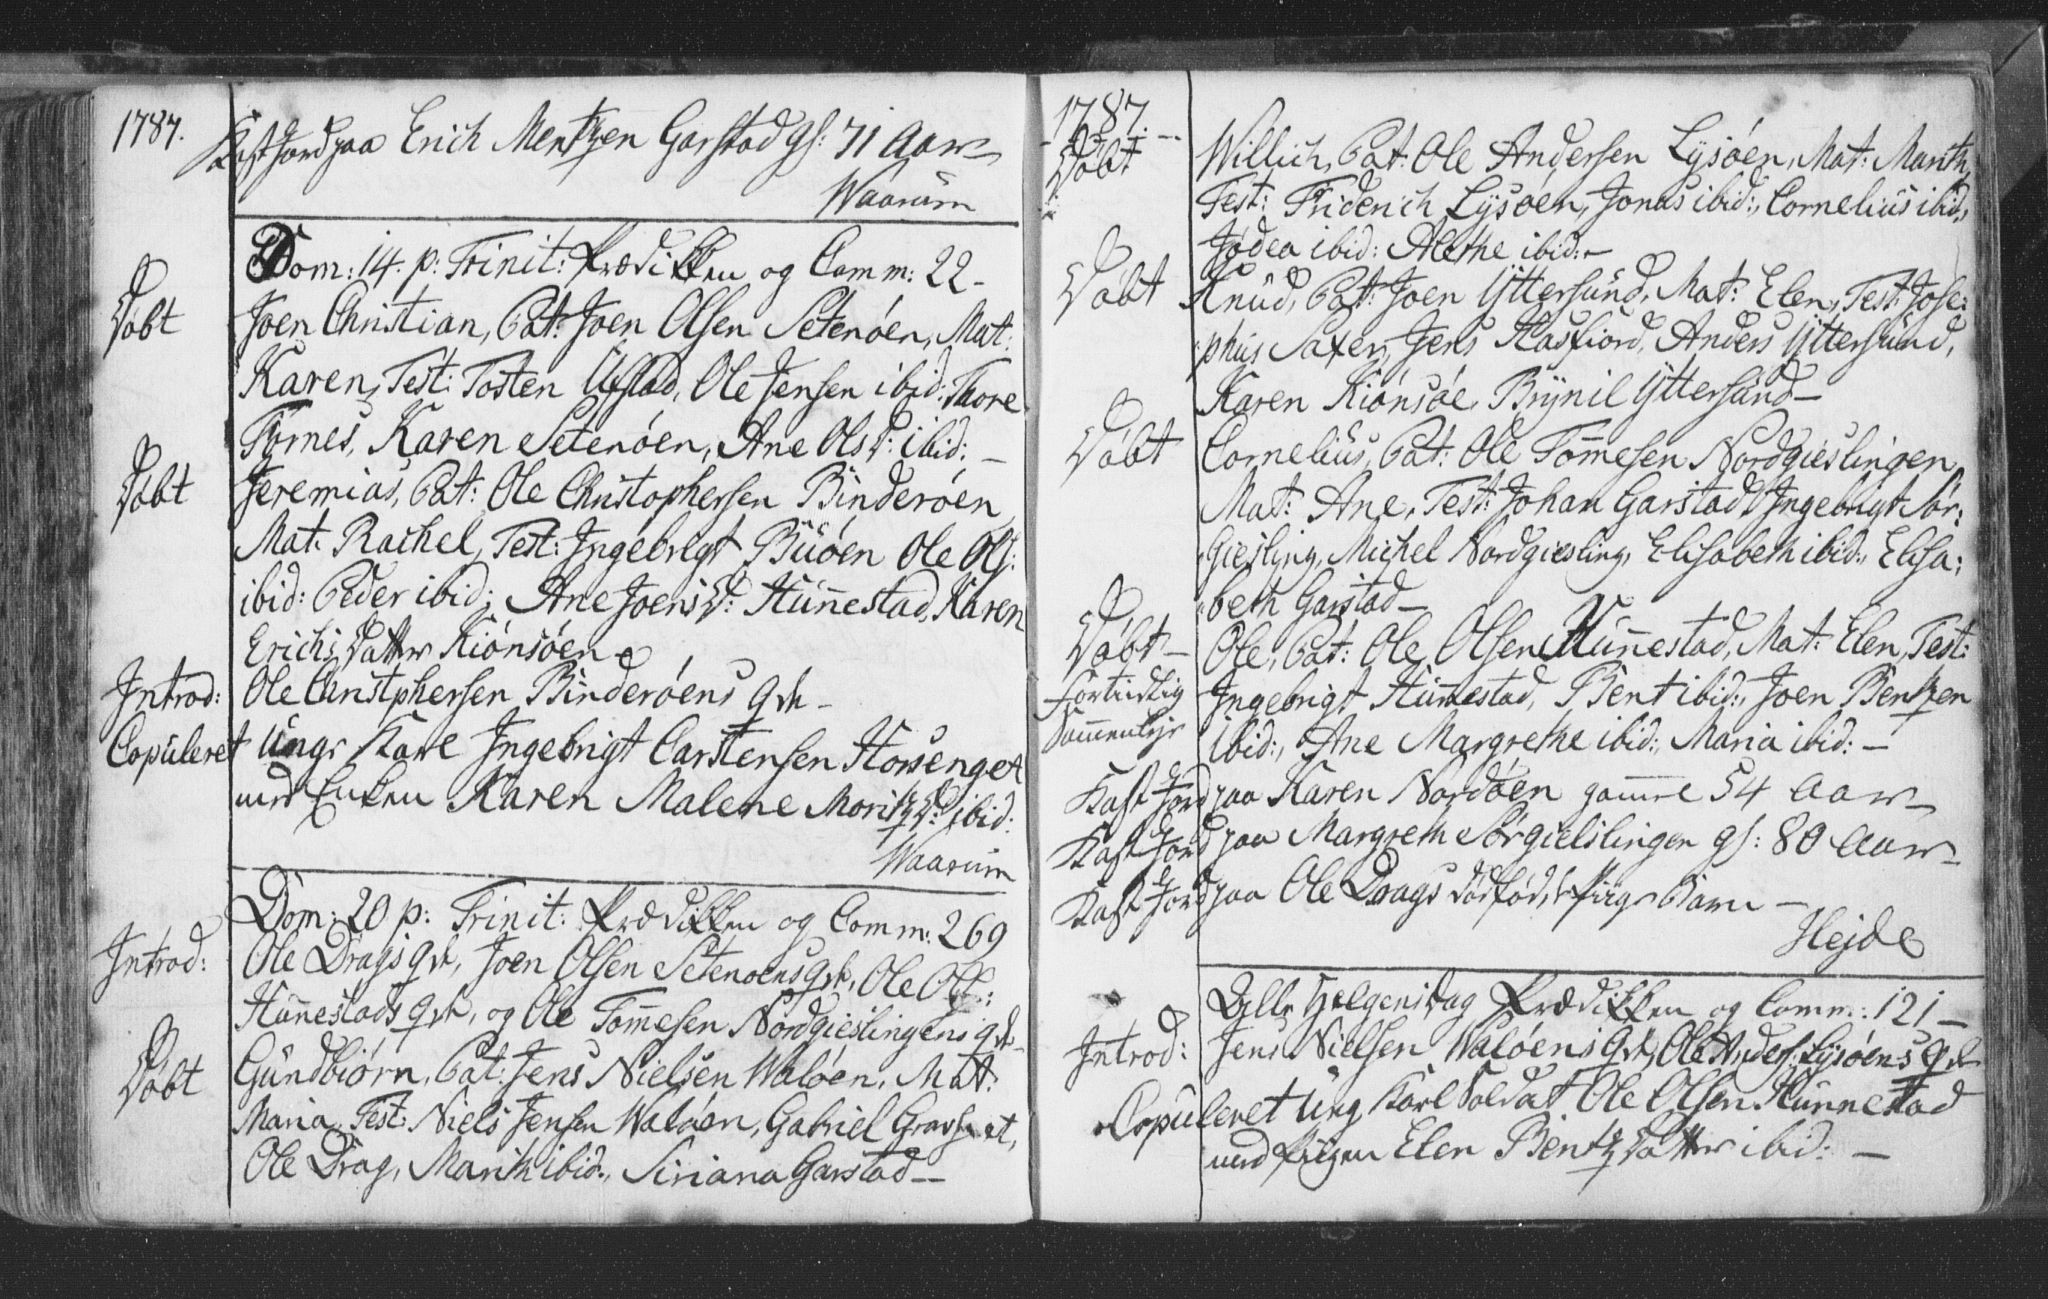 1787.
Kast Jord paa Erich Mentzen Garstad gl: 71 Aar
Waarum
Dom: 14. p: Trinit: Prædikken og Comm: 22 -
Døbt
Joen Christian, Pat: Joen Olsen Setenøen, Mat:
Karen, Test: Tosten Ufstad, Ole Jensen ibid: Thore
Fornes, Karen Setenøen, Ane Ols D: ibid: -
Døbt
Jeremias, Pat: Ole Christophersen Binderøen
Mat: Rachel, Test: Ingebrigt Büøen Ole Ols:
ibid: Peder ibid: Ane Joens D: Hünnestad, Karen
Erichs Datter Kiønsøen -
Introd: Ole Christphersen Binderøens qvk -
Copuleret Ung Karl Ingebrigt Carstensen Horsenget
med Enken Karen Malene Moritz D: ibid:
Waarum
Dom: 20 p: Trinit: Prædikken og Comm: 269
Introd: Ole Drags qvk, Joen Olsen Setenøens qvk, Ole Ols:
Hünnestads qvk, og Ole Tommesen Nordgieslingens qvk
Døbt
Gündbiørn, Pat: Jens Nielsen Waløen, Mat:
Maria, Test: Niels Jensen Waløen, Gabriel
Ole Drag, Marith ibid:, Siriana Garstad -
1787.
Døbt
Willich, Pat: Ole Andersen Lysøen, Mat: Marith,
Test: Friderich Lysøen, Jonas ibid:, Cornelius ibid:,
Jødea ibid: Alethe ibid: -
Døbt Knud, Pat: Joen Yttersund, Mat: Elen, Test: Jose:
phus Saxen, Jens Hasfiord, Anders Yttersund,
Karen Kiønsøe, Brynil Yttersund -
Døbt
Cornelius, Pat: Ole Tommesen Nordgieslingen
Mat: Ane, Test: Johan Garstad, Ingebrigt Sør:
Giesling, Michel Nordgiesling, Elisabeth ibid:, Elisa:
beth Garstad -
Døbt -
Ole, Pat: Ole Olsen Hünnestad, Mat: Elen, Test:
fortiidlig
Ingebrigt Hünnestad, Bent ibid:, Joen Bentzen
Sammenleje
ibid:, Ane Margrethe ibid:, Maria ibid: -
Kast Jord paa Karen Nordøen gammel 54 Aar
Kast Jord paa Margreth Sørgieslingen gl: 80 Aar
Kast Jord paa Ole Drags dødfød Pige Barn -
Hejde
Alle Helgens Dag Prædikken og Comm: 121 -
Introd: Jens Nielsen Waløens qvk, Ole Anders: Lysøens qvk
Copuleret Ung Karl Soldat Ole Olsen Hünnestad
med Pigen Elen Bentz Datter ibid: -